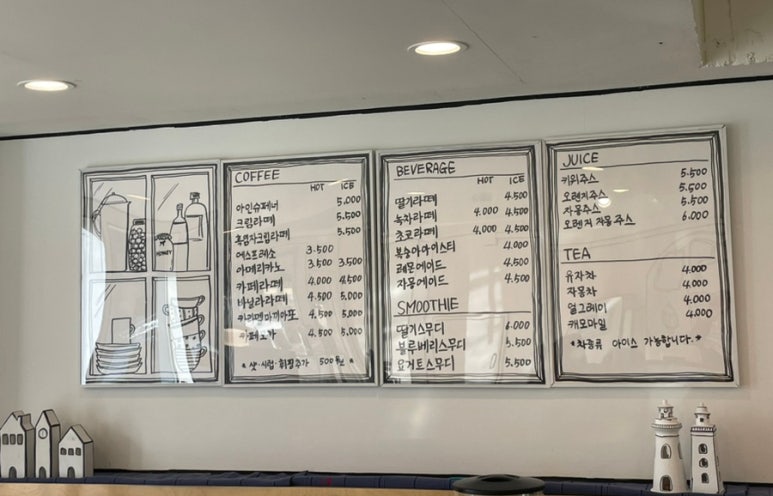 COFFEE
HOT ICE
아인슈페너 5.000
크림라떼 5.500
흑임자크림라떼 5.500
에스프레소 3.500
아메리카노 3.500 3.500
카페라떼 4.000 4.500
바닐라라떼 4.500 5.000
카라멜마끼아또 4.500 5.000
카페모카 4.500 5.000
* 샷·시럽·휘핑추가 500원 *
BEVERAGE
HOT ICE
딸기라떼 4.500
녹차라떼 4.000 4.500
초코라떼 4.000 4.500
복숭아아이스티 4.000
레몬에이드 4.500
자몽에이드 4.500
SMOOTHIE
딸기스무디 6.000
블루베리스무디 5.500
요거트스무디 5.500
JUICE
키위주스 5.500
오렌지주스 5.500
자몽주스 5.500
오렌지자몽주스 6.000
TEA
유자차 4.000
자몽차 4.000
얼그레이 4.000
캐모마일 4.000
*차종류 아이스 가능합니다.*